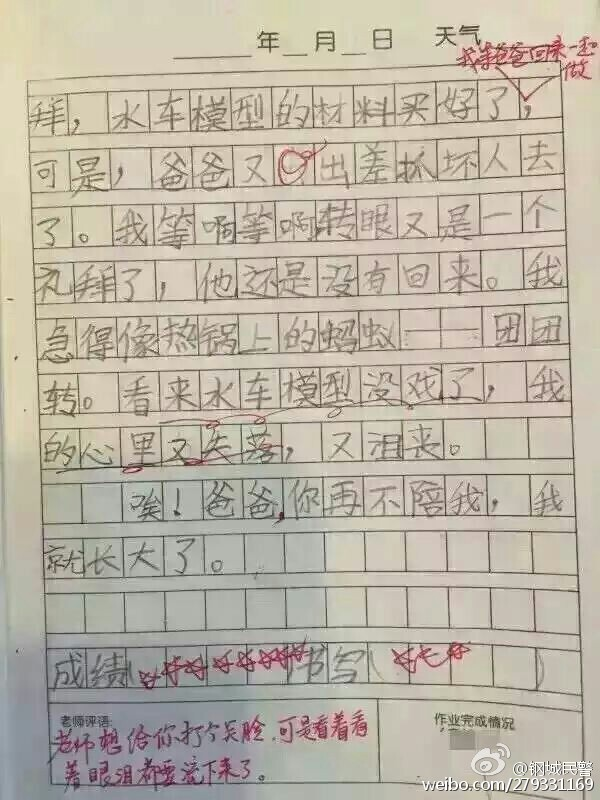 年 月 日 天气
我等爸爸回来一起
做
拜，水车模型的材料买好了，
可是，爸爸又出差抓坏人去
了。我等啊等啊转眼又是一个
礼拜了，他还是没有回来。我
急得像热锅上的蚂蚁——团团
转。看来水车模型没戏了，我
的心里又失落，又沮丧。
唉！爸爸，你再不陪我，我
就长大了。
成绩（ 书写（ ）
老师评语:
作业完成情况
老师想给你打个笑脸，可是看着看
着眼泪都要流下来了。
@钢城民警
weibo.com/279331169